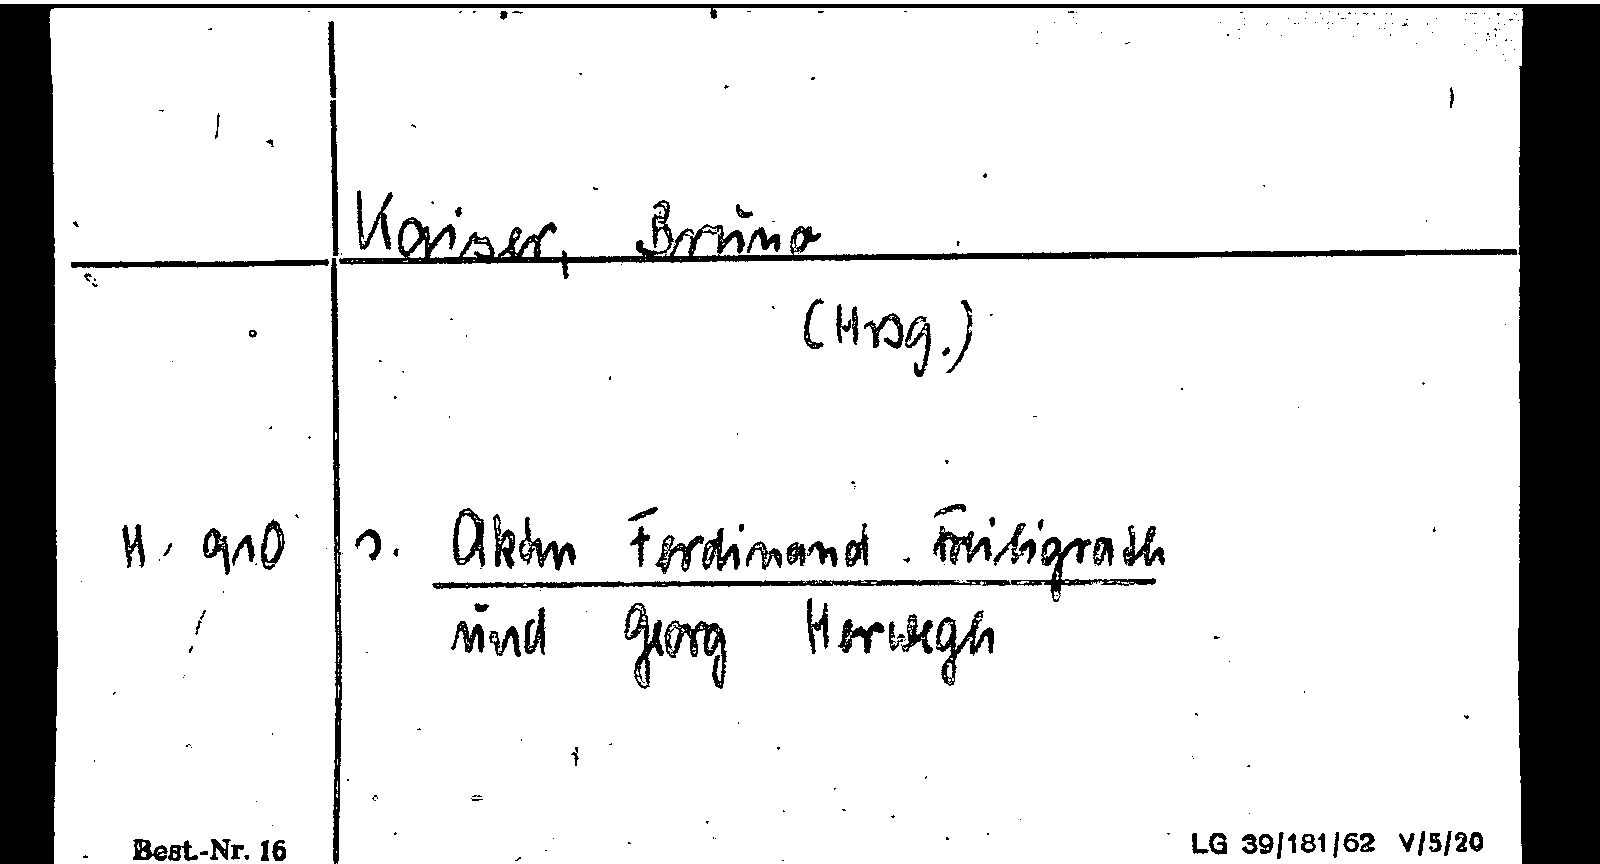 Kaiser, Bruno
(Hrsg.)
H. 910 s. Akten Ferdinand Freiligrath
und Georg Herwegh
Best.-Nr. 16 LG 39/181/62 V/5/20